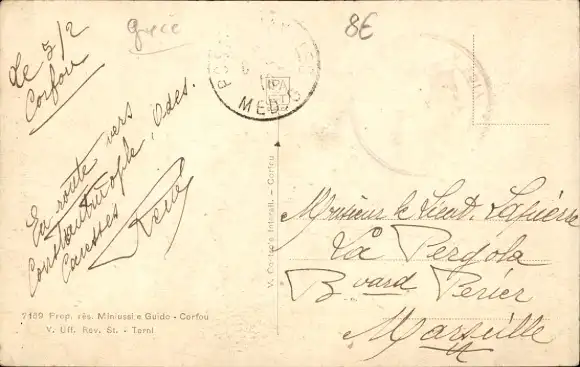 Grèce
8€
Le 7/2
Corfou
En route vers
Constantinople, Odes.
Caresses
René
MEDIO
V. Contec's Intereil. - Corfou.
Monsieur le Lieut. Laguierre
La Pergola
Bvard Perier
Marseille
7169 Prop. rés. Miniussi e Guido - Corfou
V. Uff. Rev. St. - Terni